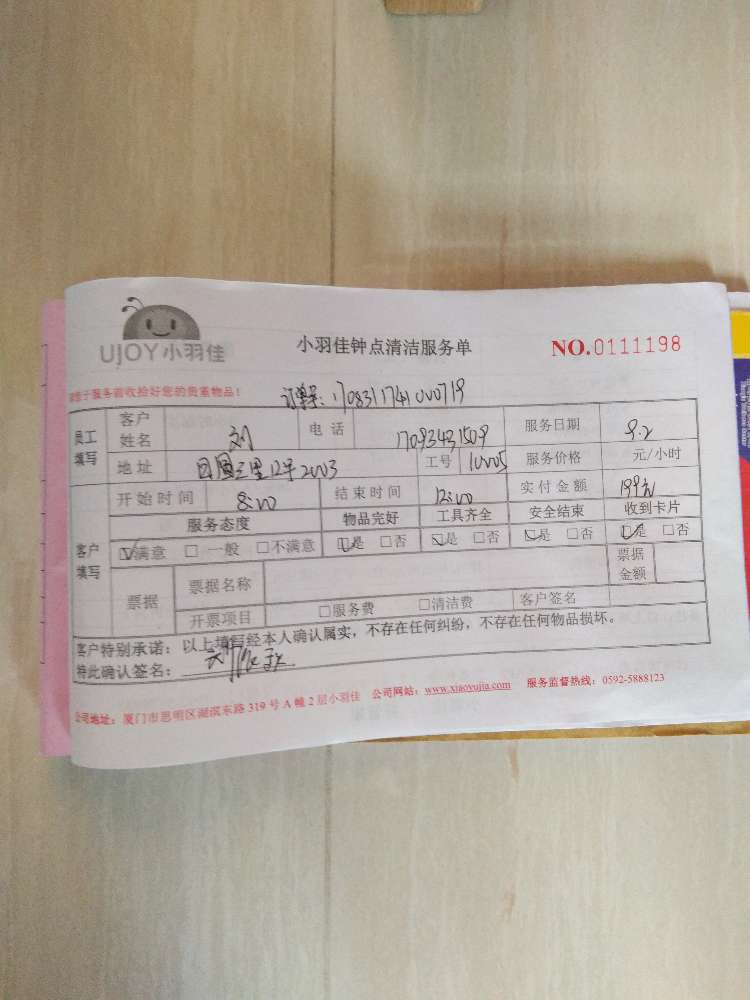 UJOY小羽佳
小羽佳钟点清洁服务单
NO.0111198
请于服务前收拾好您的贵重物品!
订单号:170831174100719
员工填写 客户姓名 刘 电话 17093431509 服务日期 9.2
地址 2003 工号 10005 服务价格 元/小时
开始时间 8:00 结束时间 12:00 实付金额 199元
客户填写 服务态度 物品完好 工具齐全 安全结束 收到卡片
☑满意 □一般 □不满意 ☑是 □否 ☑是 □否 ☑是 □否 ☑是 □否
票据 票据名称 票据金额
开票项目 □服务费 □清洁费 客户签名
客户特别承诺:以上填写经本人确认属实,不存在任何纠纷,不存在任何物品损坏。
特此确认签名:
公司地址:厦门市思明区湖滨东路319号A幢2层小羽佳 公司网站:www.xiaoyujia.com 服务监督热线:0592-5888123